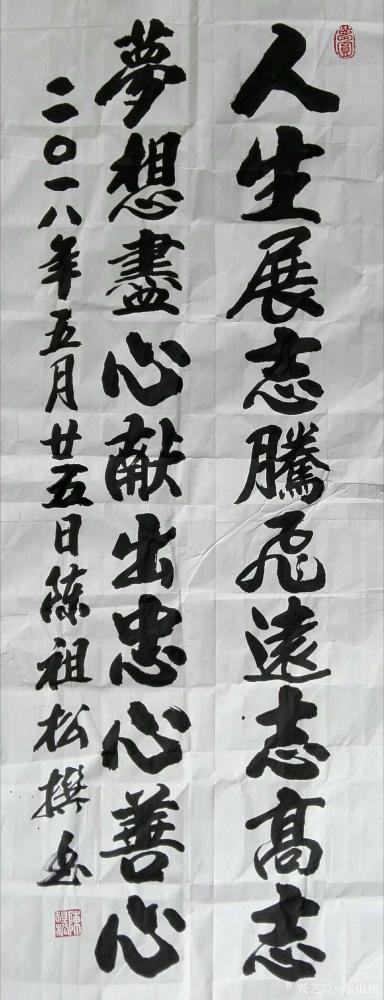 人生展志騰飛遠志高志
夢想盡心献出忠心善心
二〇一八年五月廿五日陳祖松撰書
陳祖松